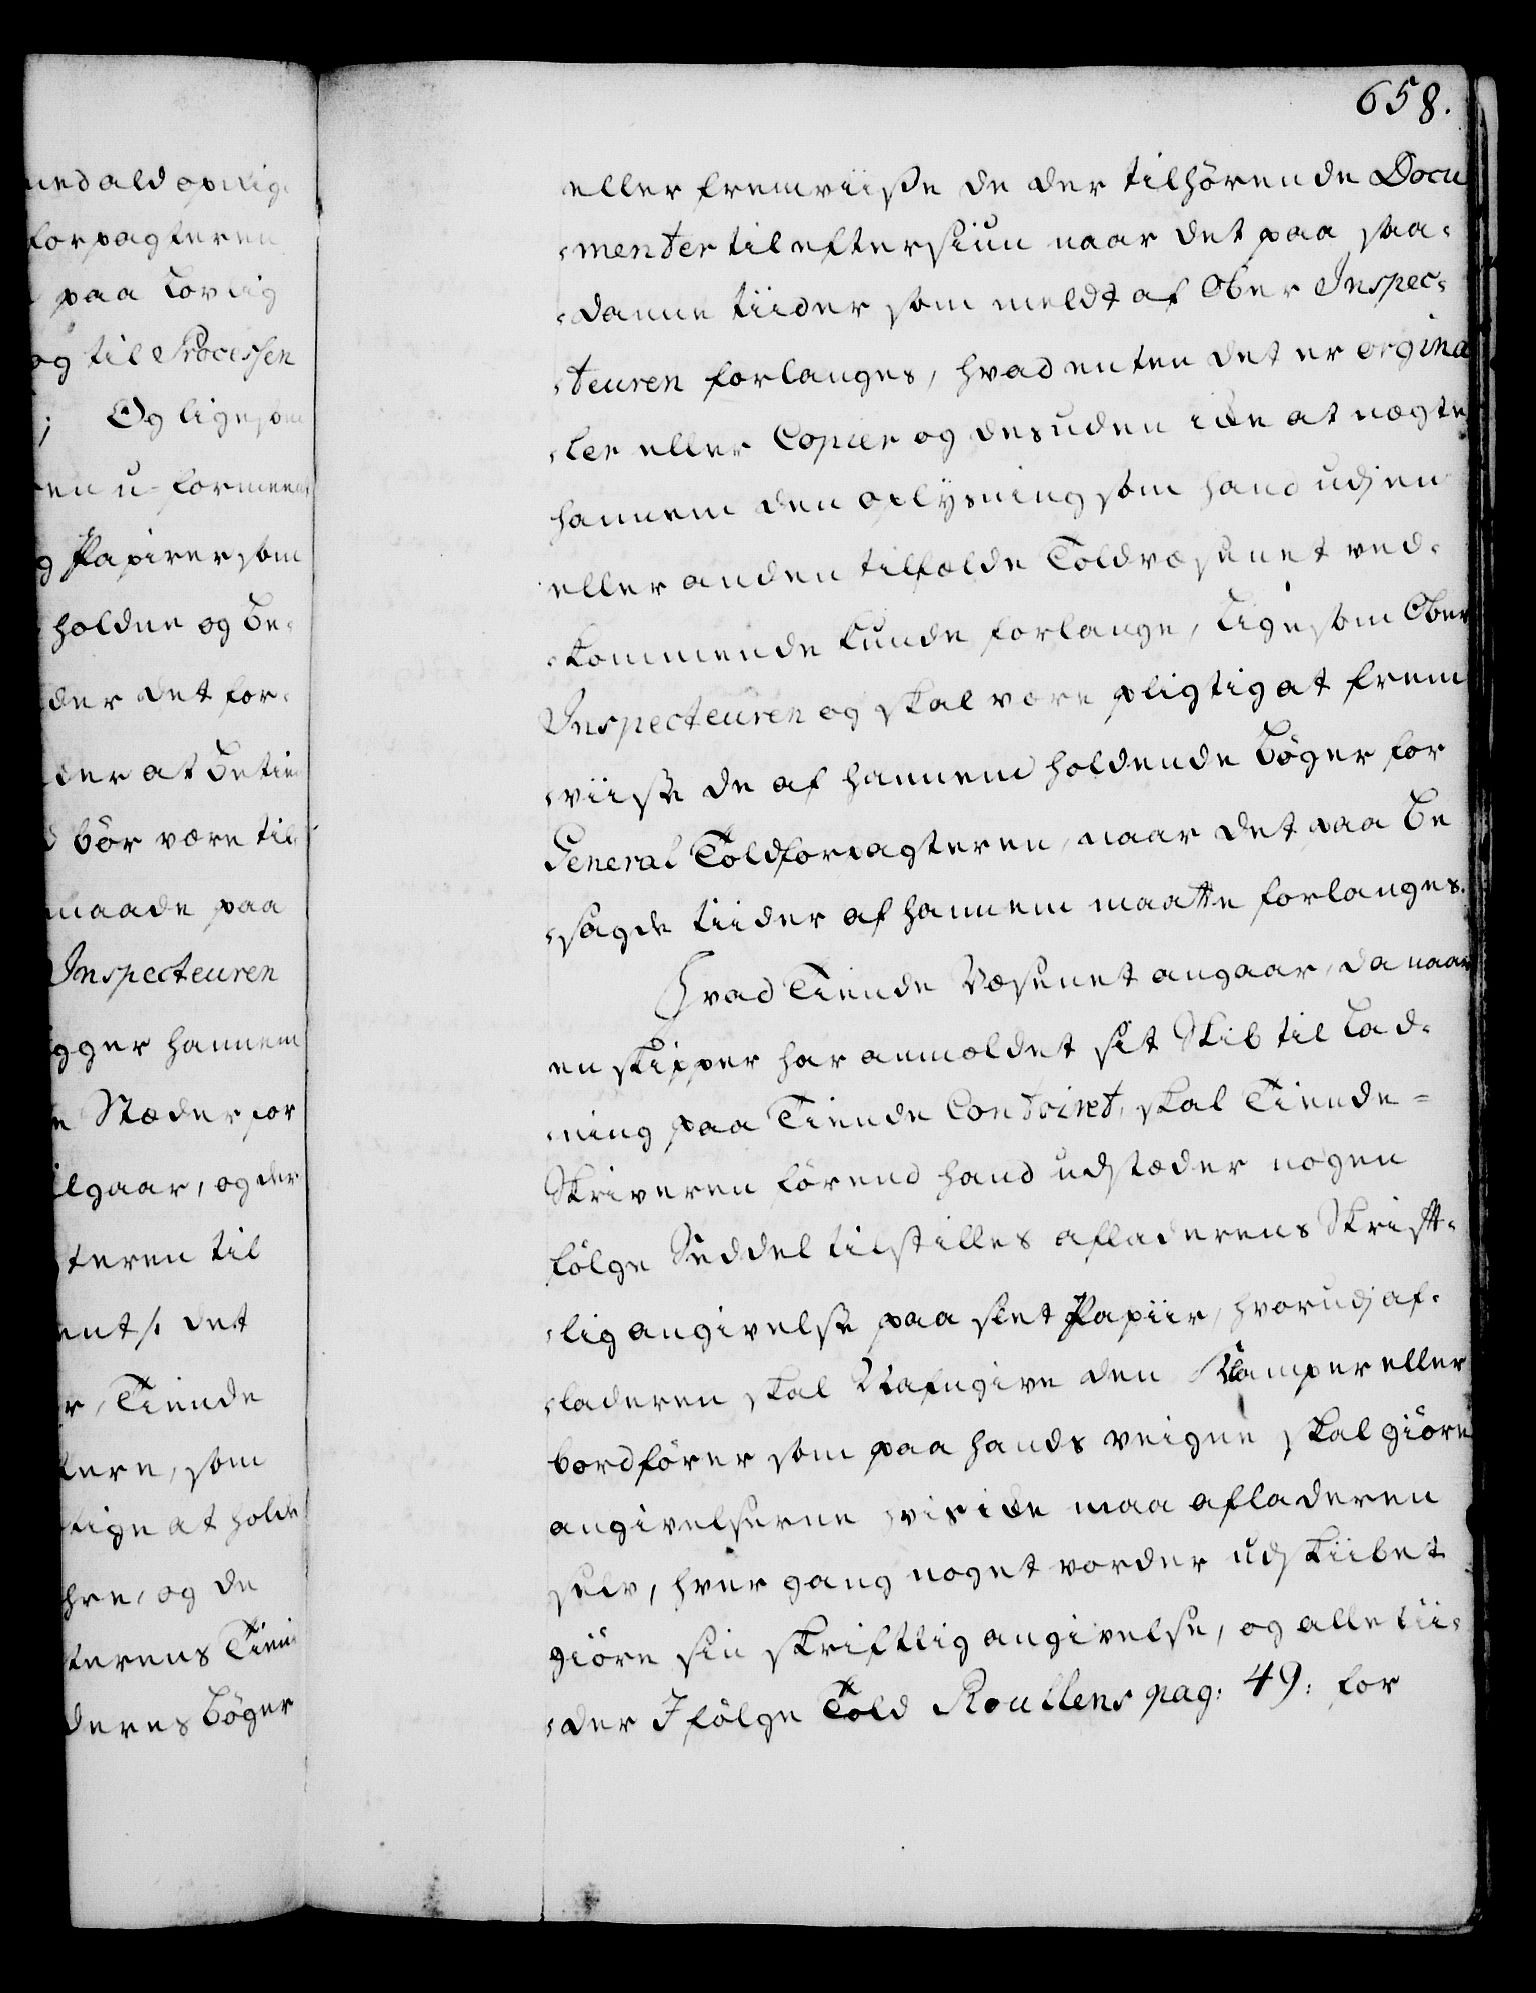 658.
eller fremviiße de der tilhørende Docu
-menter til eftersiun naar det paa saa-
-danne tiider som meldt af Ober Inspec-
-teuren forlanges, hvad enten det er orgina
-ler eller Copier og desuden icke at nægte
hannem den oplysning som hand udj en
eller anden tilfælde Toldvæsenet ved-
-kommende kunde forlange, Ligesom Ober
Inspecteuren og skal være pligtig at frem
-viiße de af hannem holdende Bøger for
General Toldforpagteren, naar det paa be
-sagde tiider af hannem maatte forlanges.
Hvad Tiende Væsenet angaar, da naar
en skipper har anmældet sit Skib til Lad-
-ning paa Tiende Contoiret, skal Tiende-
Skriveren førend hand udstæder nogen
følge Seddel tilstilles afladerens Skrift-
-lig angivelse paa slet Papiir, hvorudj af-
-laderen skal Nafngive den Klamper eller
bordfører som paa hands veigne skal giøre
angivelserne hvis icke maa afladeren
selv, hver gang noget vorder udskiibet
giøre sin skriftlig angivelse, og alle tii-
-der I følge Told Roullens pag: 49: for
med ald
forpagteren
paa Lovlig
og til Processen
; Og ligesom
en u-formeent
Papirer som
holdne og be-
der det for-
der at betien
bør være til-
maade paa
Inspecteuren
gger hannem
Stæder for
ilgaar, og der
teren til
ent /: det
r, Tiende
kere, som
tige at holde
hre, og de
terens Tien-
deres Bøger